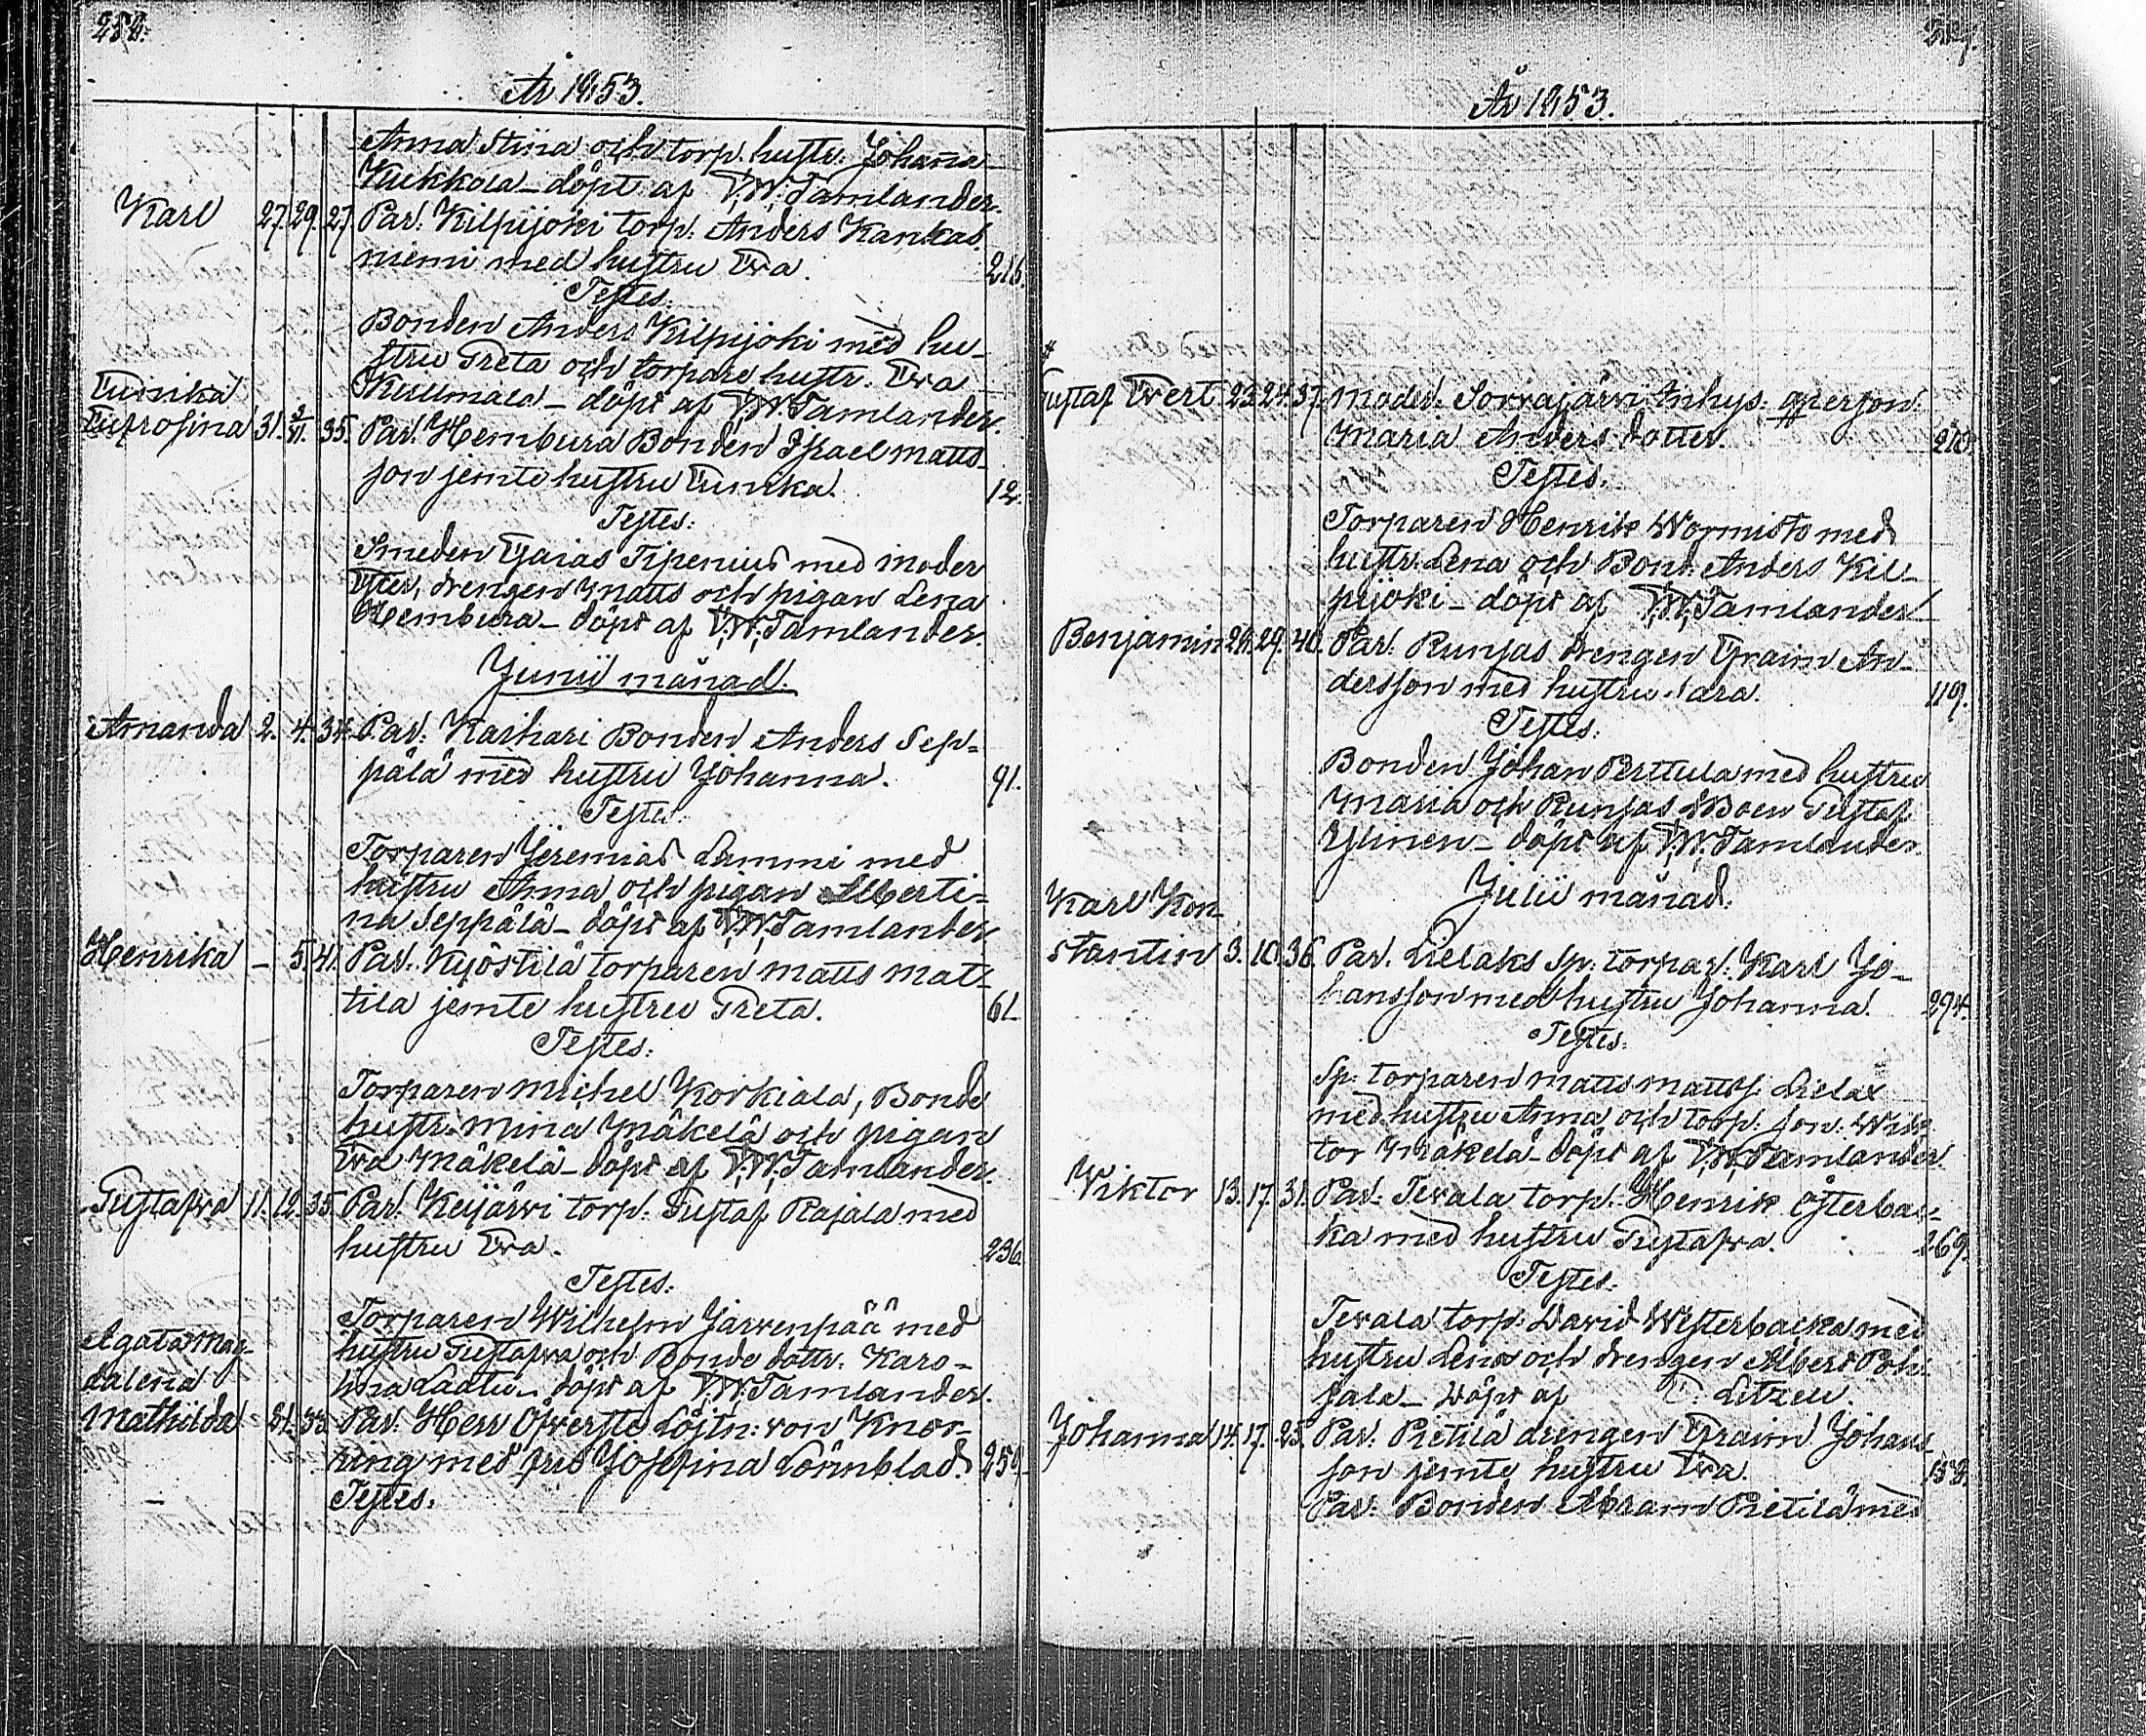 258.
År 1853.
Anna Stina och torp. hustr: Johanna
Kukkola – döpt af V.W. Tamlander.
Karl 27. 29. 27. Par: Kilpijoki torp: Anders Kankas
niemi med hustru Eva. 216.
Testes.
Bonden Anders Kilpijoki med hu-
stru Greta och torpare hustr: Eva
Kullmala – döpt af V.W. Tamlander.
Eufrosina 31. 35. Par. Hembura Bonden Israel Matts-
son jemte hustru Eunika. 12.
Testes:
Smeden Esaias Tipenius med moder
drengen Matts och pigan Lena
Hembura – döpt af V.W. Tamlander.
Junii månad.
Amanda 2. 4. 34. Par: Karhari Bonden Anders Sep-
pälä med hustru Johanna. 91.
Testes:
Torparen Jeremias Lammi med
hustru Anna och pigan Alberti-
na Seppälä – döpt af V.W. Tamlander
Henrika – 5. 41. Par. Kyöstilä torparen Matts Mat-
tila jemte hustru Greta. 61.
Testes:
Torparen Michel Korkiala, Bonde
hustr: Mina Mäkelä och pigan
Eva Mäkelä – döpt af V.W. Tamlander.
Gustafva 11. 12. 35. Par. Keijärvi torp: Gustaf Rajala med
hustru Eva. 236.
Testes:
Torparen Wilhelm Järvenpää med
hustru Gustafva och Bonde dottr. Karo-
lina – döpt af V.W. Tamlander.
Agata Mag-
dalena
Mathilda – 33. Par. Herr Öfverste Löjtn: von Knor-
ring med fru Josefina Lönnblad. 259.
Testes.
År 1853.
Gustaf Evert 23. 24. 37. Moder: Sorvajärvi Inhys: qpersson
Maria Anders dotter.
Testes.
Torparen Henrik Wormisto med
hustr: Lena och Bond: Anders Kil-
pijoki – döpt af V.W. Tamlander
Benjamin 26. 29. 40. Par: Runsas drengen Efraim An-
dersson med hustru Sara. 119.
Testes.
Bonden Johan Perttula med hustru
Maria och Runsas Gustaf
Ylinen – döpt af V.W. Tamlander.
Julii månad.
Karl Kon-
stantin 3. 10. 36. Par. Lielaks Sp: torpar: Karl Jo-
hansson med hustru Johanna. 294.
Testes:
Sp: torparen Matts Matts Lielax
med hustru Anna och torp: son: Wik-
tor Mäkelä – döpt af V.W. Tamlander.
Viktor 13. 17. 31. Par: Tevala torp: Henrik Österbac-
ka med hustru Gustafva. 269.
Testes.
Tevala torp: David Westerbacka med
hustru Lena och drengen Albert Poh-
jala – döpt af Litzen.
Johanna 14. 17. 25. Par. Pietilä drengen Efraim Johans-
son jemte hustru Eva. 158.
Par. Bonden Abram Pietilä med